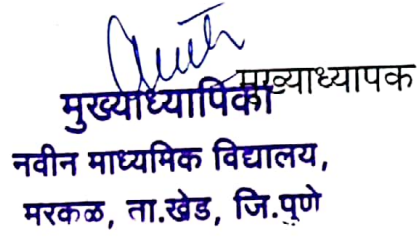 मुख्याध्यापक
मुख्याध्यापिका
नवीन माध्यमिक विद्यालय,
मरकळ, ता.खेड, जि.पुणे